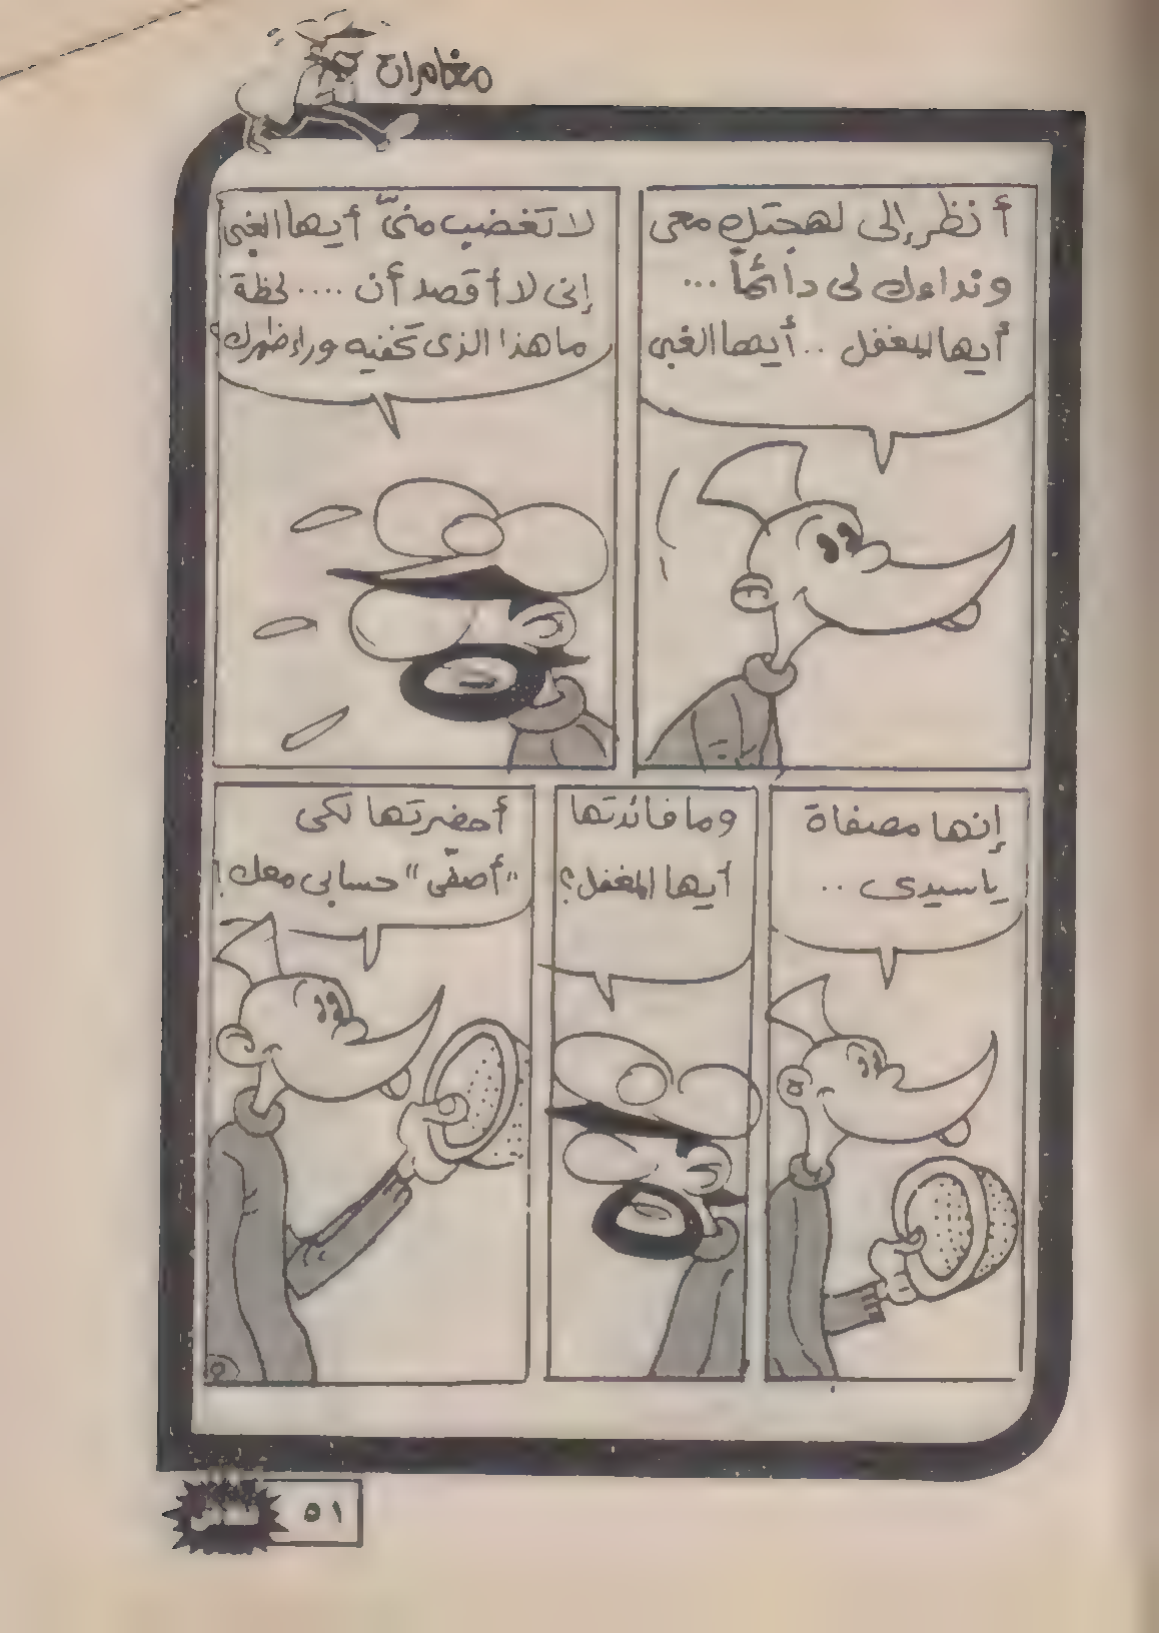 مغامرات
أنظر إلى لهجتك معى
ونداءك لى دائماً ...
أيها المغفل .. أيها الغبى
لا تغضب منىّ أيها الغبى
إنى لا أقصد أن .... لحظة
ما هذا الذى تخفيه وراء ظهرك؟
إنها مصفاة
ياسيدى ..
وما فائدتها
أيها المغفل؟
أحضرتها لكى
"أصفّى" حسابى معك!
٥١